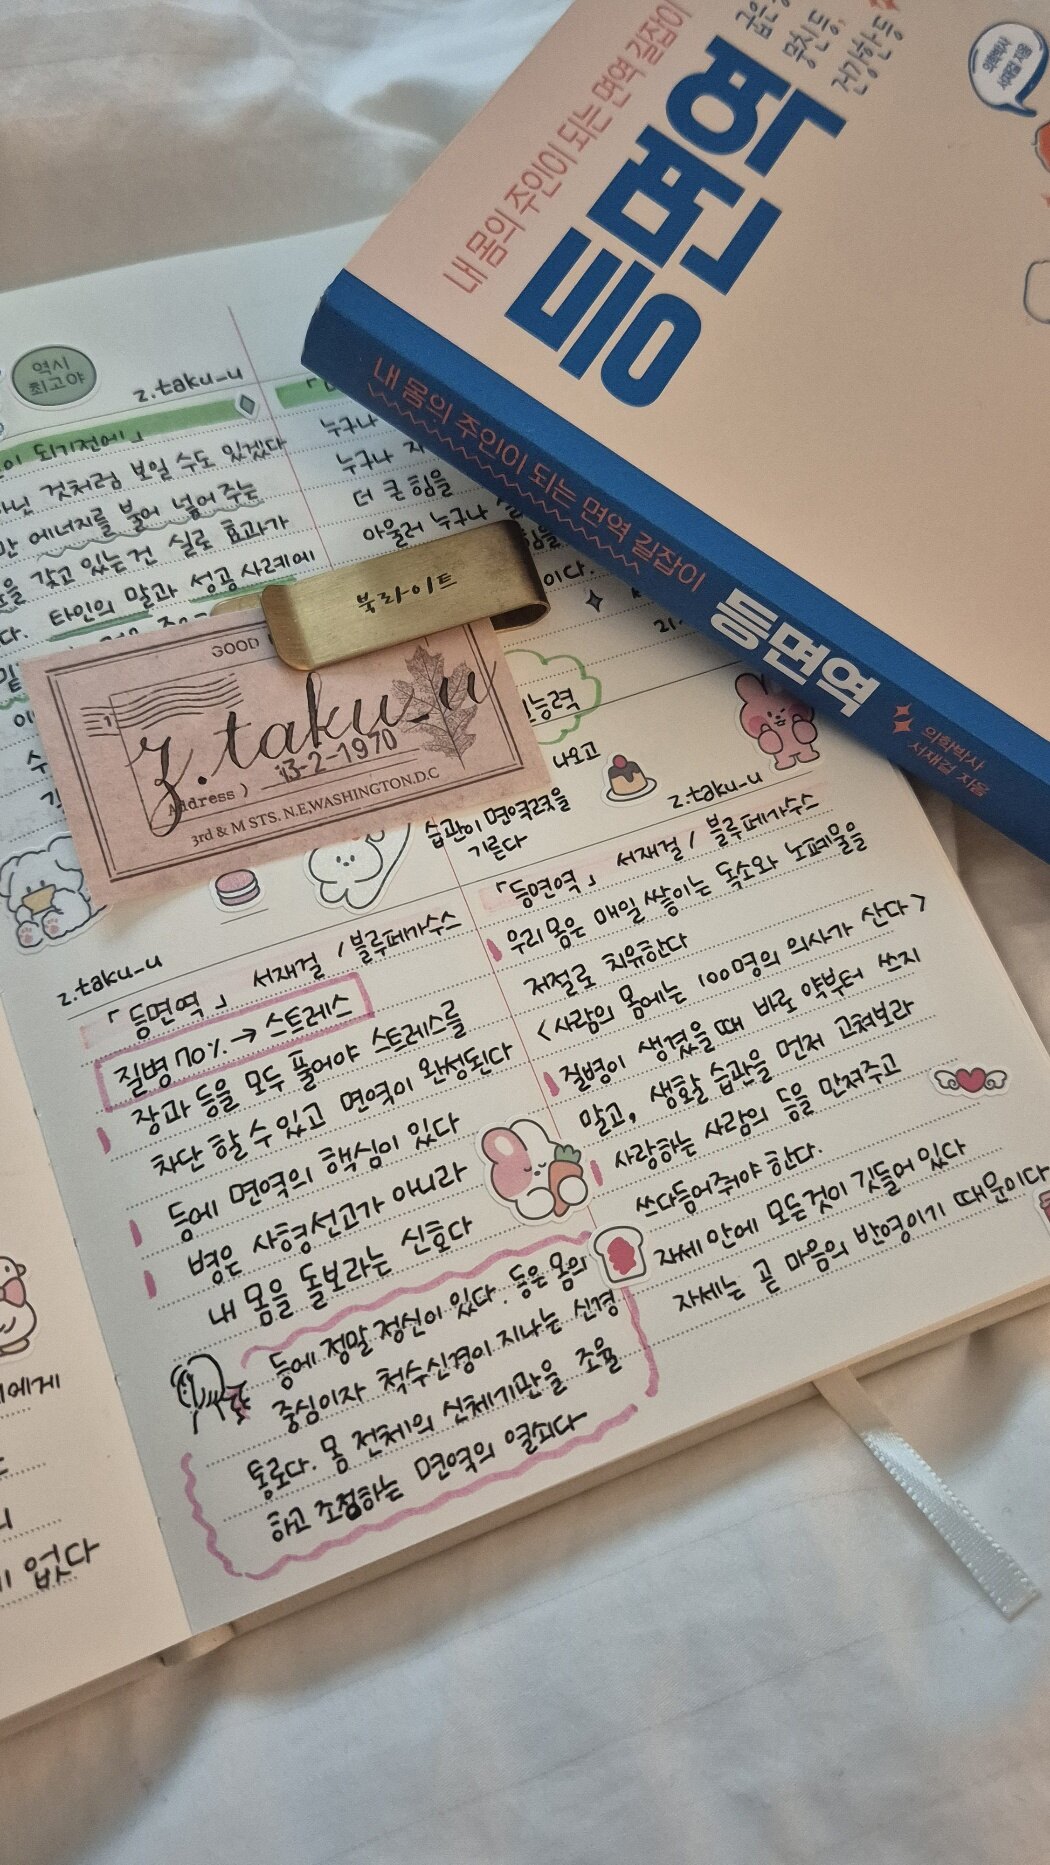 내 몸의 주인이 되는 면역 길잡이
등면역
굽은 등,
뭉친 등,
건강한 등
내 몸의 주인이 되는 면역 길잡이
등면역
의학박사
서재걸 지음
역시
최고야
z.taku_u
되기전에」
것처럼 보일 수도 있겠다
에너지를 불어 넣어 주는
갖고 있는건 실로 효과가
타인의 말과 성공 사례에
누구나
누구나
더 큰 힘을
아울러 누구나
이다.
북라이트
GOOD
z.taku_u
13-2-1970
Address )
3rd & M STS. N.E,WASHINGTON.D.C
능력
나오고
습관이 면역력을
기른다
z.taku_u
「등면역」 서재걸 / 블루페가수스
질병 70% → 스트레스
장과 등을 모두 풀어야 스트레스를
차단 할 수 있고 면역이 완성된다
등에 면역의 핵심이 있다
병은 사형선고가 아니라
내 몸을 돌보라는 신호다
등에 정말 정신이 있다. 등은 몸의
중심이자 척수신경이 지나는 신경
통로다. 몸 전체의 신체기만을 조율
하고 조절하는 면역의 열쇠다
z.taku_u
「등면역」 서재걸 / 블루페가수스
우리 몸은 매일 쌓이는 독소와 노폐물을
저절로 치유한다
<사람의 몸에는 100명의 의사가 산다>
질병이 생겼을때 바로 약부터 쓰지
말고, 생활 습관을 먼저 고쳐보라
사랑하는 사람의 등을 만져주고
쓰다듬어줘야 한다.
자세 안에 모든것이 깃들어 있다
자세는 곧 마음의 반영이기 때문이다
에게
없다